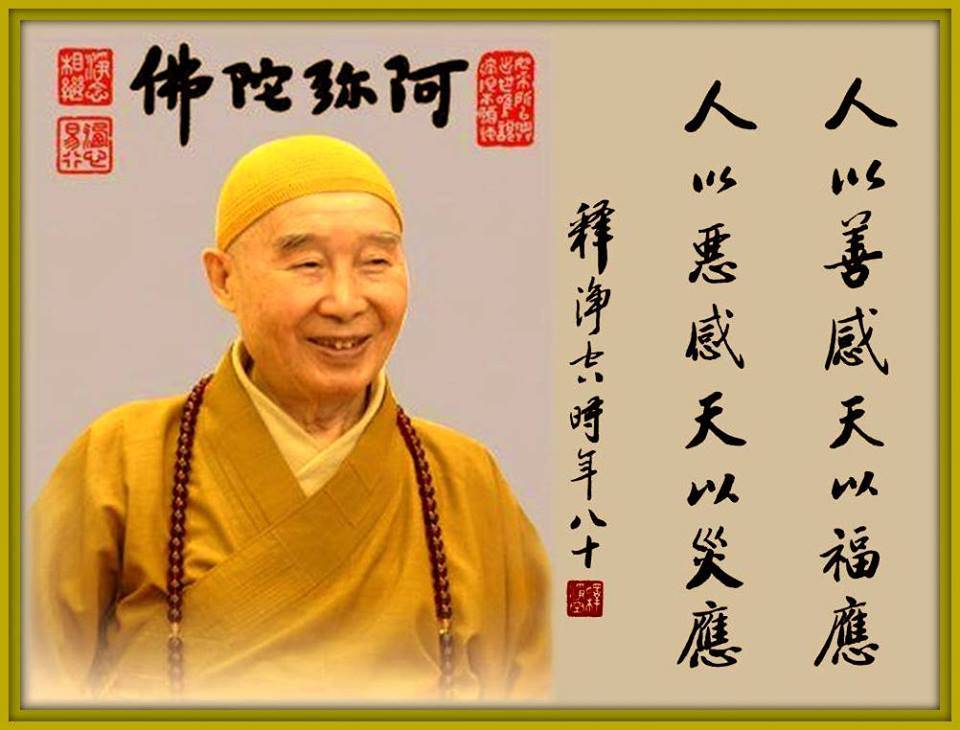 阿弥陀佛
淨念相繼
人以善感天以福應
人以悪感天以災應
釋淨空時年八十